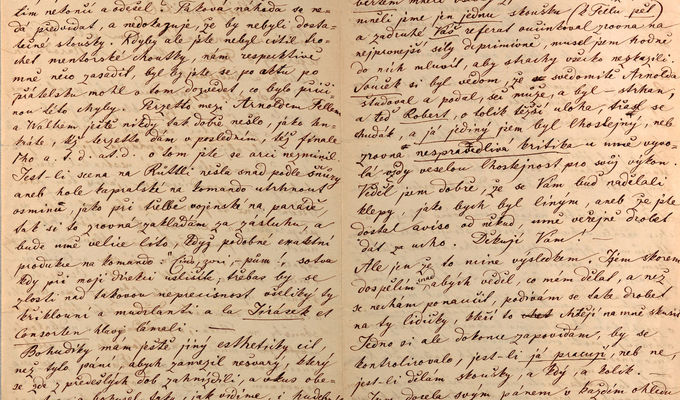 tím netonči a odešel. Taková náhoda se ne-
dá předvídat, a nedokazuje, že by nebyli dosta-
tečné zkoušky. Kdyby ale jste nebyl cítil tro-
chet mentorské choutky, nám respektive
mně něco zasadit, byl by jste se po aktu po
přátelsku mohl o tom dozvědět, co bylo příči-
nou této chyby. Terzetto mezi Arnoldem Tellem
a Waltrem ještě nikdy tak dobře nešlo, jako ten-
kráte, též terzetto dám v posledním, též finale
1ho a. t. d. at. d. o tom jste se arci nezmínil.
Jest-li scena na Rüttli nešla snad podle šňůry
aneb hole kaprálské na komando utrhnout
osminu, jako při střelbě vojenské na parádě
tak si to zrovna zakládám za zásluhu, a
bude mně velice líto, když podobné exaktní
produkce na komando: pum! , sotva
kdy při mojí direkci uslišíte, třebas by se
zlostí nad takovou neprecisnost všeliky ty
křiklouni a mudrlanti a la Jirásek et
Consorten hlavy lámali. —
Bohudíky mám ještě jiný esthetický cíl,
než tito páni, abych zamezil nešvary, který
se zde z předešlých dob zahnízdili, a vkus obe-
jak vidíme, i hudeb
měli jsme jen jednu zkoušku (a Tell pět)
a zadruhé Váš referat oučinkoval zrovna na
nejpronější síly deprimivně, musel jsem hodně
do nich mluvit, aby strachy všecko nezkazili.
Souček si byl vědom, že svědomitě Arnolda
studoval a podal, seč může, a byl – strhán,
a teď Robert, o tolik těžší úloha, třásl se
chudák, a já jediný jsem byl lhostejný, neb
zrovna nespravedlivá kritika u mně vyvo-
lá vždy veselou lhostejnost pro svůj výkon.
Věděl jsem dobře, že se Vám buď nadělali
klepy, jako bych byl líným, aneb že jste
dostal aviso od někud, mně veřejně drobet
dát za ucho. Děkuji Vám! —
Ale jen že to nemine výsledkem. Jsem skorem
dospělým snad, abych věděl, co mám dělat, a než
se nechám ponaučit, podívám se také drobet
na ty lidičky, kteří to chtějí na mně zkusit
Jedno si ale dokonce zapovídám, by se
kontrolovalo, jest-li já pracuji, neb ne,
jest-li dělám zkoušky, a kdy, a kolik. —
Jsem docela svým pánem v každém ohledu